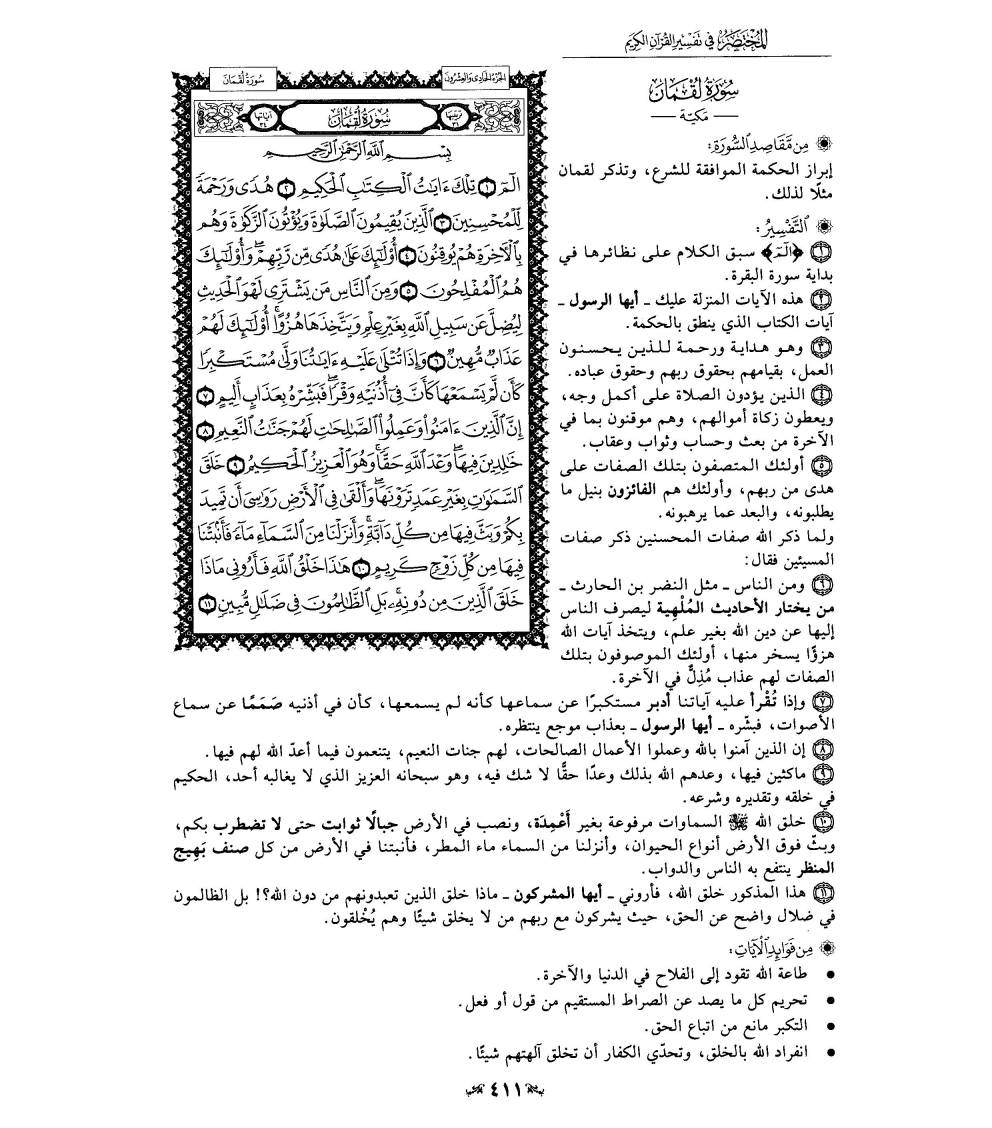 المختصر في تفسير القرآن الكريم
سورة لقمان
ـ مكية ـ
من مقاصد السورة:
إبراز الحكمة الموافقة للشرع، وتذكر لقمان
مثلًا لذلك.
التفسير:
١ ﴿الٓمٓ﴾ سبق الكلام على نظائرها في
بداية سورة البقرة.
٢ هذه الآيات المنزلة عليك ـ أيها الرسول ـ
آيات الكتاب الذي ينطق بالحكمة.
٣ وهو هداية ورحمة للذين يحسنون
العمل، بقيامهم بحقوق ربهم وحقوق عباده.
٤ الذين يؤدون الصلاة على أكمل وجه،
ويعطون زكاة أموالهم، وهم موقنون بما في
الآخرة من بعث وحساب وثواب وعقاب.
٥ أولئك المتصفون بتلك الصفات على
هدى من ربهم، وأولئك هم الفائزون بنيل ما
يطلبونه، والبعد عما يرهبونه.
ولما ذكر الله صفات المحسنين ذكر صفات
المسيئين فقال:
٦ ومن الناس ـ مثل النضر بن الحارث ـ
من يختار الأحاديث المُلْهِية ليصرف الناس
إليها عن دين الله بغير علم، ويتخذ آيات الله
هزؤًا يسخر منها، أولئك الموصوفون بتلك
الصفات لهم عذاب مُذِلٌّ في الآخرة.
الجزء الحادي والعشرون
سورة لقمان
ترتيبها ٣١
سورة لقمان
آياتها ٣٤
بسم الله الرحمن الرحيم
الٓمٓ ١ تِلْكَ ءَايَٰتُ ٱلْكِتَٰبِ ٱلْحَكِيمِ ٢ هُدًى وَرَحْمَةً
لِّلْمُحْسِنِينَ ٣ ٱلَّذِينَ يُقِيمُونَ ٱلصَّلَوٰةَ وَيُؤْتُونَ ٱلزَّكَوٰةَ وَهُم
بِٱلْءَاخِرَةِ هُمْ يُوقِنُونَ ٤ أُوْلَٰٓئِكَ عَلَىٰ هُدًى مِّن رَّبِّهِمْۖ وَأُوْلَٰٓئِكَ
هُمُ ٱلْمُفْلِحُونَ ٥ وَمِنَ ٱلنَّاسِ مَن يَشْتَرِى لَهْوَ ٱلْحَدِيثِ
لِيُضِلَّ عَن سَبِيلِ ٱللَّهِ بِغَيْرِ عِلْمٍ وَيَتَّخِذَهَا هُزُوًاۚ أُوْلَٰٓئِكَ لَهُمْ
عَذَابٌ مُّهِينٌ ٦ وَإِذَا تُتْلَىٰ عَلَيْهِ ءَايَٰتُنَا وَلَّىٰ مُسْتَكْبِرًا
كَأَن لَّمْ يَسْمَعْهَا كَأَنَّ فِىٓ أُذُنَيْهِ وَقْرًاۖ فَبَشِّرْهُ بِعَذَابٍ أَلِيمٍ ٧
إِنَّ ٱلَّذِينَ ءَامَنُواْ وَعَمِلُواْ ٱلصَّٰلِحَٰتِ لَهُمْ جَنَّٰتُ ٱلنَّعِيمِ ٨
خَٰلِدِينَ فِيهَاۖ وَعْدَ ٱللَّهِ حَقًّاۚ وَهُوَ ٱلْعَزِيزُ ٱلْحَكِيمُ ٩ خَلَقَ
ٱلسَّمَٰوَٰتِ بِغَيْرِ عَمَدٍ تَرَوْنَهَاۖ وَأَلْقَىٰ فِى ٱلْأَرْضِ رَوَٰسِىَ أَن تَمِيدَ
بِكُمْ وَبَثَّ فِيهَا مِن كُلِّ دَآبَّةٍۚ وَأَنزَلْنَا مِنَ ٱلسَّمَآءِ مَآءً فَأَنۢبَتْنَا
فِيهَا مِن كُلِّ زَوْجٍ كَرِيمٍ ١٠ هَٰذَا خَلْقُ ٱللَّهِ فَأَرُونِى مَاذَا
خَلَقَ ٱلَّذِينَ مِن دُونِهِۦۚ بَلِ ٱلظَّٰلِمُونَ فِى ضَلَٰلٍ مُّبِينٍ ١١
٧ وإذا تُقْرأ عليه آياتنا أدبر مستكبرًا عن سماعها كأنه لم يسمعها، كأن في أذنيه صَمَمًا عن سماع
الأصوات، فبشّره ـ أيها الرسول ـ بعذاب موجع ينتظره.
٨ إن الذين آمنوا بالله وعملوا الأعمال الصالحات، لهم جنات النعيم، يتنعمون فيما أعدّ الله لهم فيها.
٩ ماكثين فيها، وعدهم الله بذلك وعدًا حقًّا لا شك فيه، وهو سبحانه العزيز الذي لا يغالبه أحد، الحكيم
في خلقه وتقديره وشرعه.
١٠ خلق الله ﷻ السماوات مرفوعة بغير أَعْمِدَة، ونصب في الأرض جبالًا ثوابت حتى لا تضطرب بكم،
وبثّ فوق الأرض أنواع الحيوان، وأنزلنا من السماء ماء المطر، فأنبتنا في الأرض من كل صنف بَهِيج
المنظر ينتفع به الناس والدواب.
١١ هذا المذكور خلق الله، فأروني ـ أيها المشركون ـ ماذا خلق الذين تعبدونهم من دون الله؟! بل الظالمون
في ضلال واضح عن الحق، حيث يشركون مع ربهم من لا يخلق شيئًا وهم يُخْلقون.
من فوائد الآيات:
• طاعة الله تقود إلى الفلاح في الدنيا والآخرة.
• تحريم كل ما يصد عن الصراط المستقيم من قول أو فعل.
• التكبر مانع من اتباع الحق.
• انفراد الله بالخلق، وتحدّي الكفار أن تخلق آلهتهم شيئًا.
٤١١